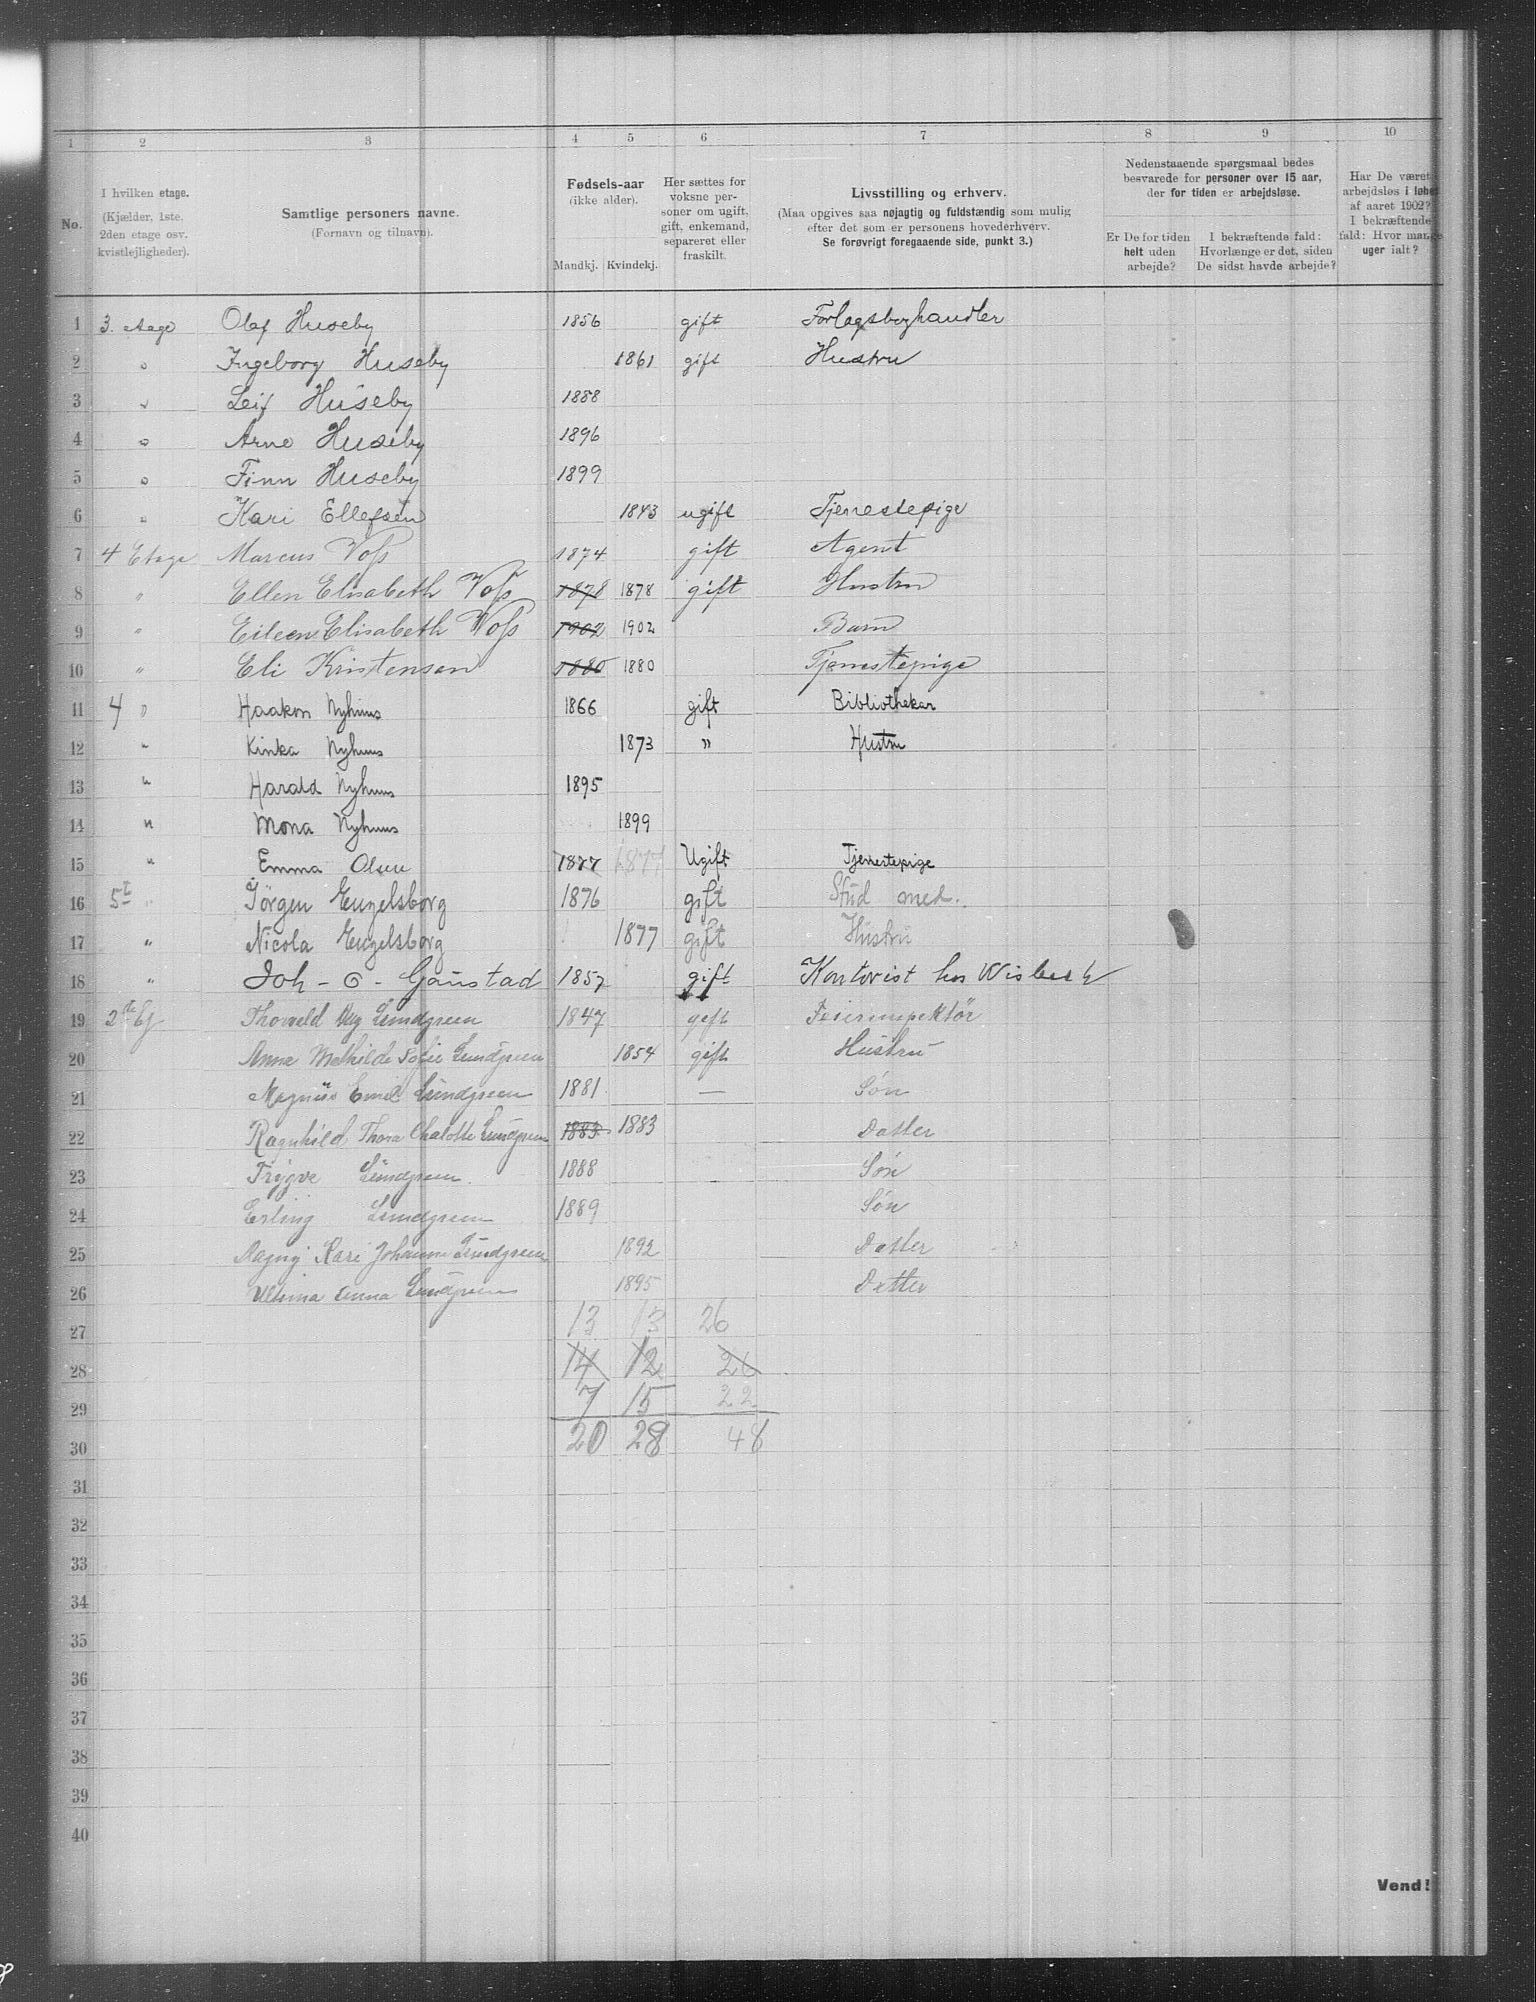 1 2 3 4 5 6 7 8 9 10
No.
I hvilken etage.
(Kjælder, 1ste.
2den etage osv.
kvistlejligheder).
Samtlige personers navne.
(Fornavn og tilnavn).
Fødsels-aar
(ikke alder).
Mandkj. Kvindekj.
Her sættes for
voksne per-
soner om ugift,
gift, enkemand,
separeret eller
fraskilt.
Livsstilling og erhverv.
(Maa opgives saa nøjagtig og fuldstændig som mulig
efter det som er personens hovederhverv.
Se forøvrigt foregaaende side, punkt 3.)
Nedenstaaende spørgsmaal bedes
besvarede for personer over 15 aar,
der for tiden er arbejdsløse.
Er De for tiden
helt uden
arbejde?
I bekræftende fald:
Hvorlænge er det, siden
De sidst havde arbejde?
Har De været
arbejdsløs i løbet
af aaret 1902?
I bekræftende
fald: Hvor mange
uger ialt?
1 3. Etage Olaf Huseby 1856 gift Forlagsboghandler
2 " Ingeborg Huseby 1861 gift Hustru
3 " Leif Huseby 1888
4 " Arne Huseby 1896
5 " Finn Huseby 1899
6 " Kari Ellefsen 1843 ugift Tjenestepige
7 4 Etage Marcus Voss 1874 gift Agent
8 " Ellen Elisabeth Voss 1878 1878 gift Hustru
9 " Eileen Elisabeth Voss 1902 1902 Barn
10 " Eli Kristensen 1880 1880 Tjenestepige
11 4 " Haakon Nyhuus 1866 gift Bibliothekar
12 " Kinka Nyhuus 1873 " Hustru
13 " Harald Nyhuus 1895
14 " Mona Nyhuus 1899
15 " Emma Olsen 1877 1877 Ugift Tjenestepige
16 5t " Jörgen Engelsborg 1876 gift Stud med.
17 " Nicola Engelsborg 1877 gift Hustru
18 " Joh - O - Gaustad 1857 gift Kontorist hos Wisbech
19 2de Etg Thorvald Aug Lundgreen 1847 gift Feierinspektör
20 Anna Mathilde Sofie Lundgreen 1854 gift Hustru
21 Magnus Emil Lundgreen 1881 — Søn
22 Ragnhild Thora Chalotte Lundgreen 1883 1883 Datter
23 Trygve Lundgreen 1888 Søn
24 Erling Lundgreen 1889 Søn
25 Dagny Kari Johanne Lundgreen 1892 Datter
26 Anna Lundgreen 1895 Datter
27 13 13 26
28 14 12 26
29 7 15 22
30 20 28 48
31
32
33
34
35
36
37
38
39
40
Vend!